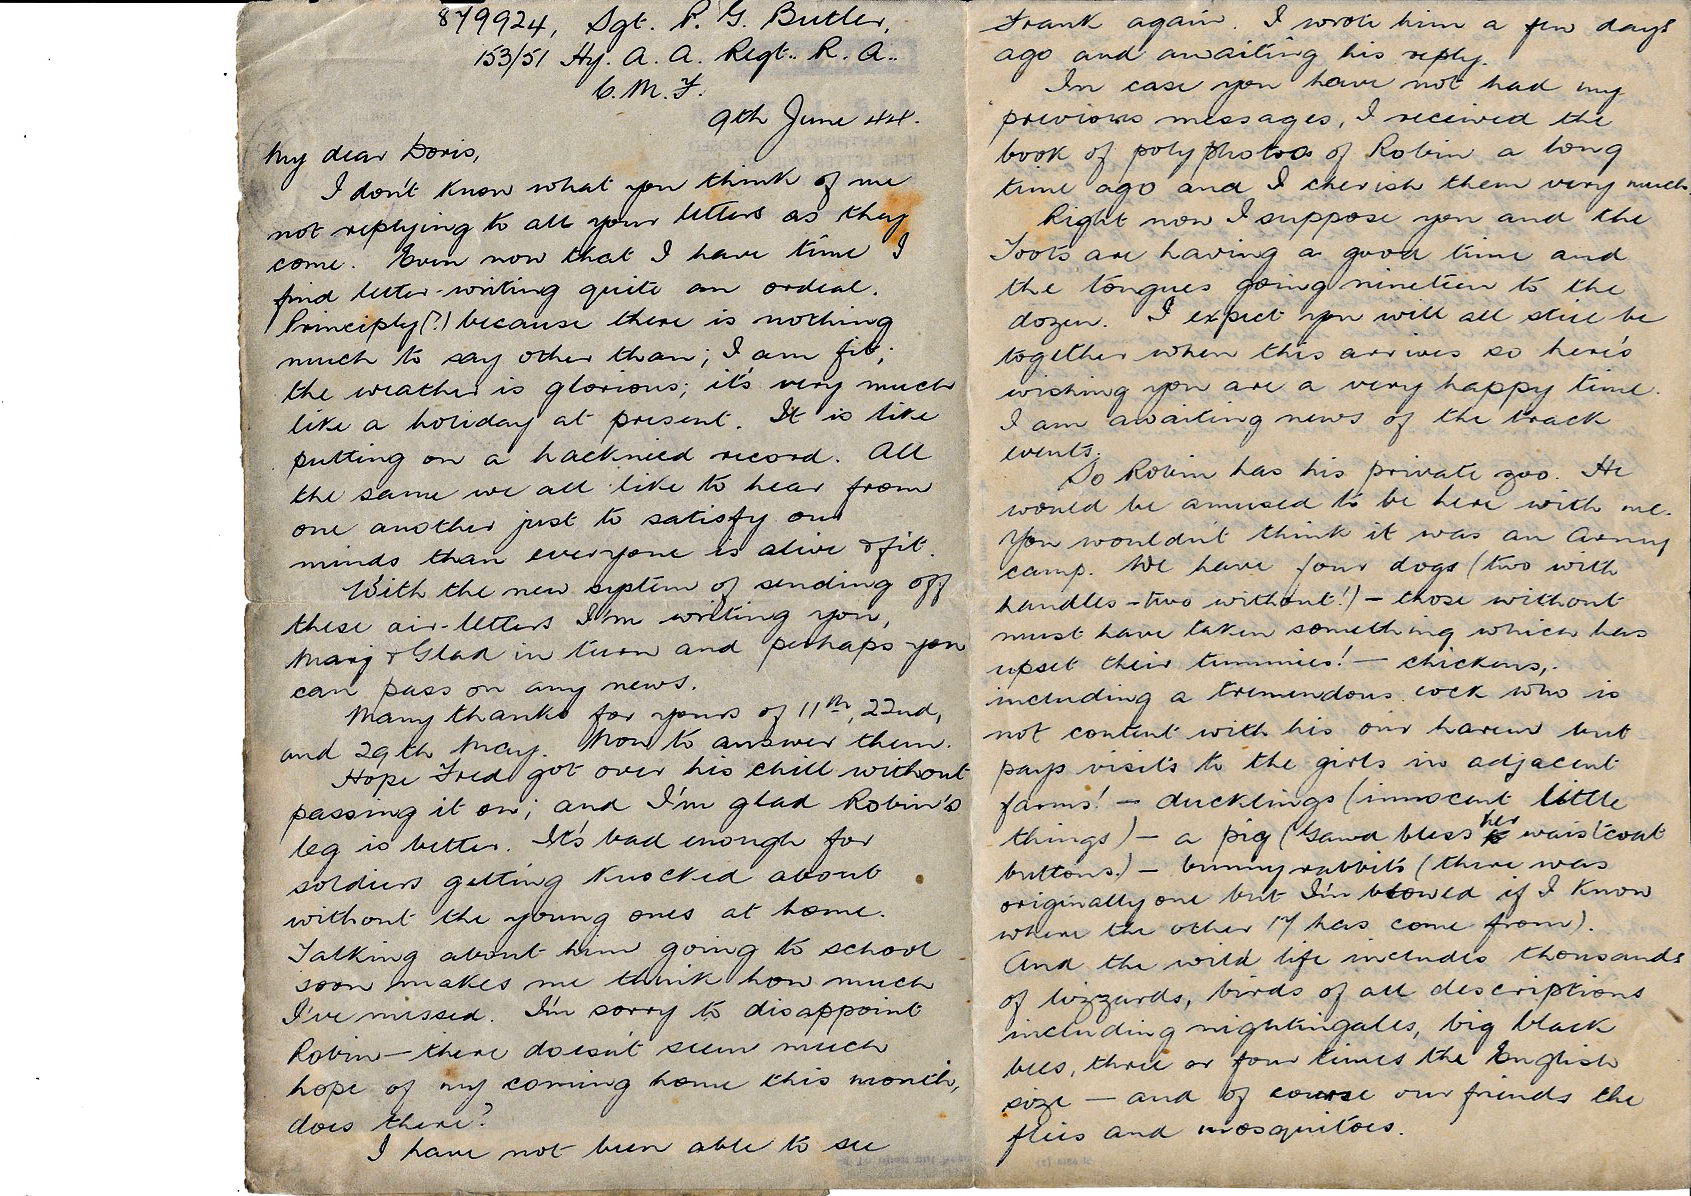 879924, Sgt. P. G. Butler,
153/51 Hy. A. A. Regt.. R. A..
C. M. F.
9th June 44.
My dear Doris,
I don't know what you think of me
not replying to all your letters as they
come. Even now that I have time I
find letter-writing quite an ordeal.
Principly(?) because there is nothing
much to say other than; I am fit;
the weather is glorious; it's very much
like a holiday at present. It is like
putting on a hacknied record. All
the same we all like to hear from
one another just to satisfy our
minds than everyone is alive & fit.
With the new system of sending off
these air-letters I'm writing you,
Marj & Glad in turn and perhaps you
can pass on any news.
Many thanks for yours of 11th, 22nd,
and 29th May. Now to answer them.
Hope Fred got over his chill without
passing it on; and I'm glad Robin's
leg is better. It's bad enough for
soldiers getting knocked about
without the young ones at home.
Talking about him going to school
soon makes me think how much
I've missed. I'm sorry to disappoint
Robin — there doesn't seem much
hope of my coming home this month,
does there?
I have not been able to see
Frank again. I wrote him a few days
ago and awaiting his reply.
In case you have not had my
previous messages, I received the
book of polyphotos of Robin a long
time ago and I cherish them very much.
Right now I suppose you and the
Toots are having a good time and
the tongues going nineteen to the
dozen. I expect you will all still be
together when this arrives so here's
wishing you are a very happy time.
I am awaiting news of the track
events.
So Robin has his private zoo. He
would be amused to be here with me.
You wouldn't think it was an Army
camp. We have four dogs (two with
handles - two without!) — those without
must have taken something which has
upset their tummies! — chickens,
including a tremendous cock who is
not content with his own harem but
pays visits to the girls in adjacent
farms! — ducklings (innocent little
things) — a pig (Gawd bless her waistcoat
buttons) — bunny rabbits (there was
originally one but I'm blowed if I know
where the other 17 has come from).
And the wild life includes thousands
of lizzards, birds of all descriptions
including nightingales, big black
bees, three or four times the English
size — and of course our friends the
flies and mosquitoes.